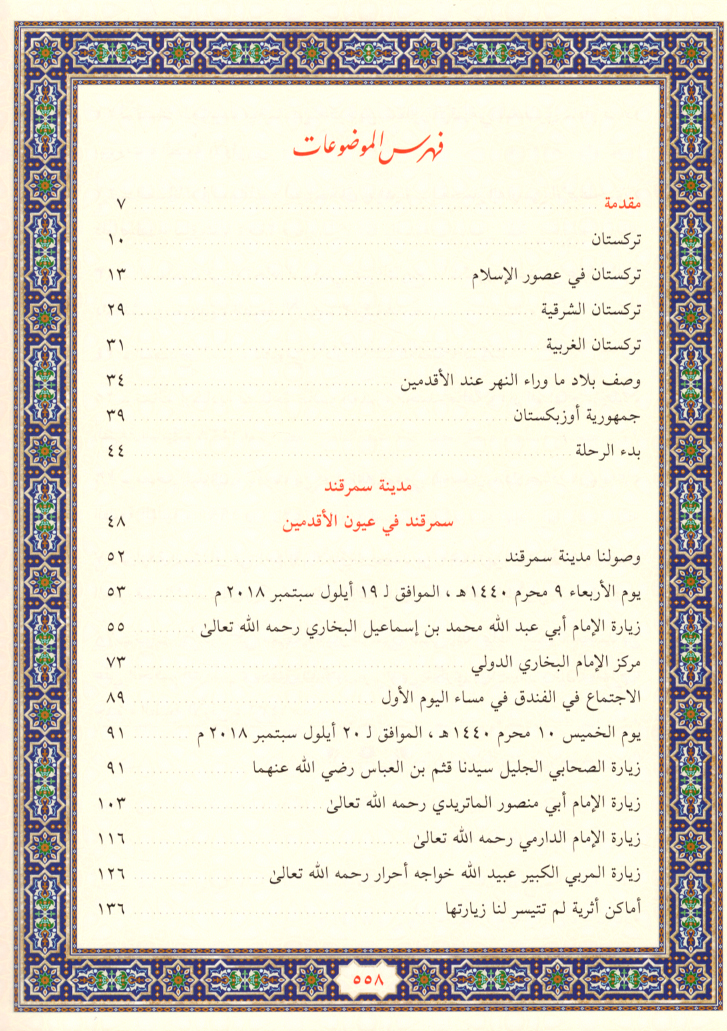 فهرس الموضوعات
مقدمة ٧
تركستان ١٠
تركستان في عصور الإسلام ١٣
تركستان الشرقية ٢٩
تركستان الغربية ٣١
وصف بلاد ما وراء النهر عند الأقدمين ٣٤
جمهورية أوزبكستان ٣٩
بدء الرحلة ٤٤
مدينة سمرقند
سمرقند في عيون الأقدمين ٤٨
وصولنا مدينة سمرقند ٥٢
يوم الأربعاء ٩ محرم ١٤٤٠هـ ، الموافق لـ ١٩ أيلول سبتمبر ٢٠١٨ م ٥٣
زيارة الإمام أبي عبد الله محمد بن إسماعيل البخاري رحمه الله تعالىٰ ٥٥
مركز الإمام البخاري الدولي ٧٣
الاجتماع في الفندق في مساء اليوم الأول ٨٩
يوم الخميس ١٠ محرم ١٤٤٠هـ ، الموافق لـ ٢٠ أيلول سبتمبر ٢٠١٨ م ٩١
زيارة الصحابي الجليل سيدنا قثم بن العباس رضي الله عنهما ٩١
زيارة الإمام أبي منصور الماتريدي رحمه الله تعالىٰ ١٠٣
زيارة الإمام الدارمي رحمه الله تعالىٰ ١١٦
زيارة المربي الكبير عبيد الله خواجه أحرار رحمه الله تعالىٰ ١٢٦
أماكن أثرية لم تتيسر لنا زيارتها ١٣٦
٥٥٨